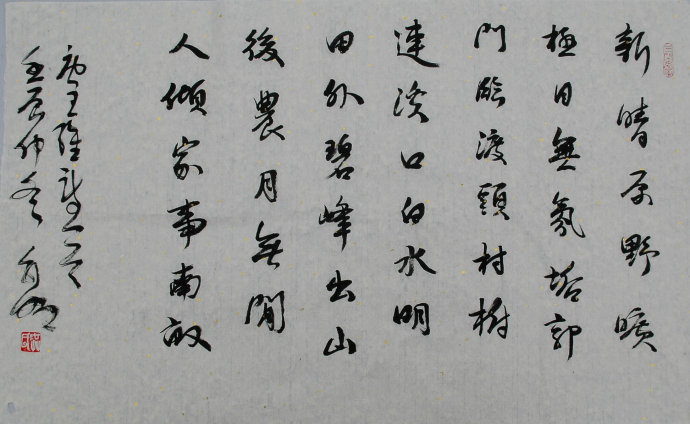 新晴原野曠
極目無氛垢郭
門臨渡頭村樹
連溪口白水明
田外碧峰出山
後農月無閒
人傾家事南畝
唐王維詩一首
壬辰仲冬